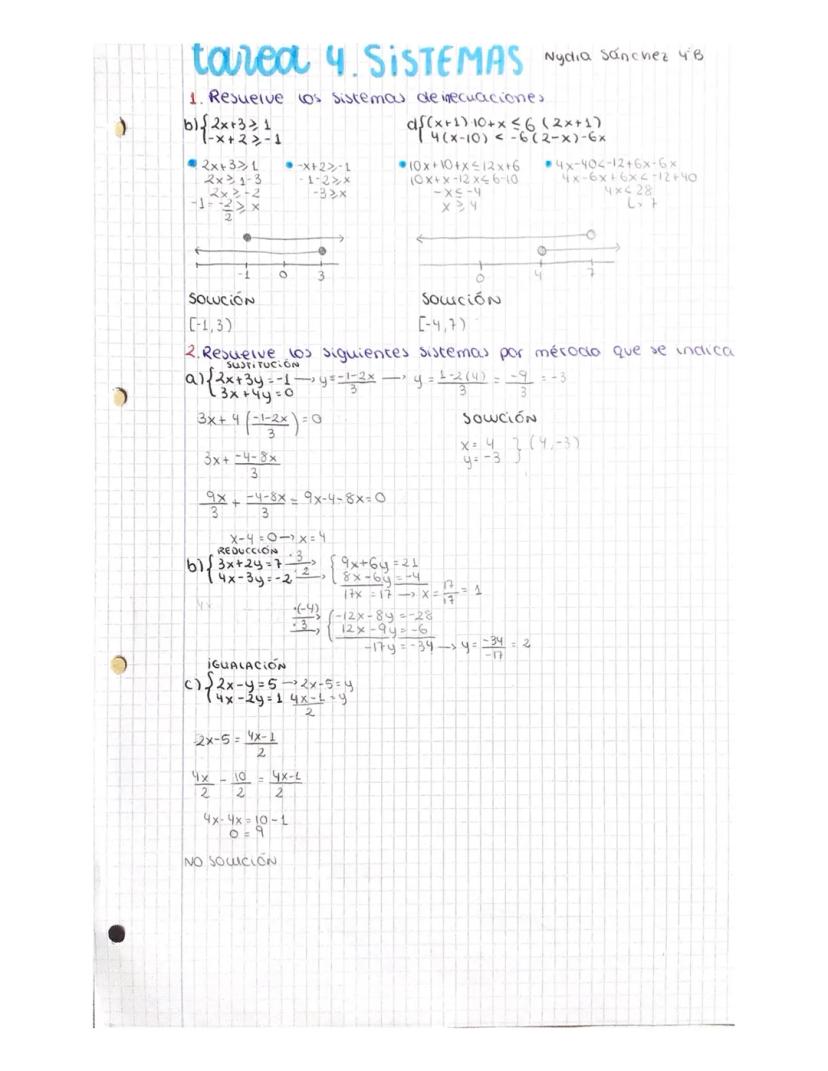 tarea 4. SISTEMAS Nydia Sánchez 4ºB
1. Resuelve los sistemas de inecuaciones
b) { 2x+3 ≥ 1
-x+2 ≥ -1
d) { (x+1)·10+x ≤ 6(2x+1)
4(x-10) < -6(2-x)-6x
• 2x+3 ≥ 1
2x ≥ 1-3
2x ≥ -2
-1 = -2/2 ≥ x
• -x+2 ≥ -1
-1-2 ≥ x
-3 ≥ x
• 10x+10+x ≤ 12x+6
10x+x-12x ≤ 6-10
-x ≤ -4
x ≥ 4
• 4x-40 < -12+6x-6x
4x-6x+6x < -12+40
4x < 28
L> 7
-1 0 3
0 4 7
SOLUCIÓN
[-1,3)
SOLUCIÓN
[-4,7)
2. Resuelve los siguientes sistemas por método que se indica
SUSTITUCIÓN
a) { 2x+3y=-1 → y = -1-2x/3 → y = 1-2(4)/3 = -9/3 = -3
3x+4y=0
3x+4(-1-2x/3)=0
3x+ -4-8x/3
9x/3 + -4-8x/3 = 9x-4-8x=0
x-4=0 → x=4
SOLUCIÓN
x= 4
y= -3 } (4,-3)
REDUCCIÓN
b) { 3x+2y=7 ·3→ { 9x+6y=21
4x-3y=-2 ·2→ 8x-6y=-4
17x =17 → x= 17/17 = 1
4x
·(-4) { -12x-8y=-28
·3→ 12x-9y=-6
-17y=-34 → y= -34/-17 = 2
IGUALACIÓN
c) { 2x-y=5 → 2x-5=y
4x-2y=1 4x-1/2 = y
2x-5 = 4x-1/2
4x/2 - 10/2 = 4x-1/2
4x-4x=10-1
0=9
NO SOLUCIÓN